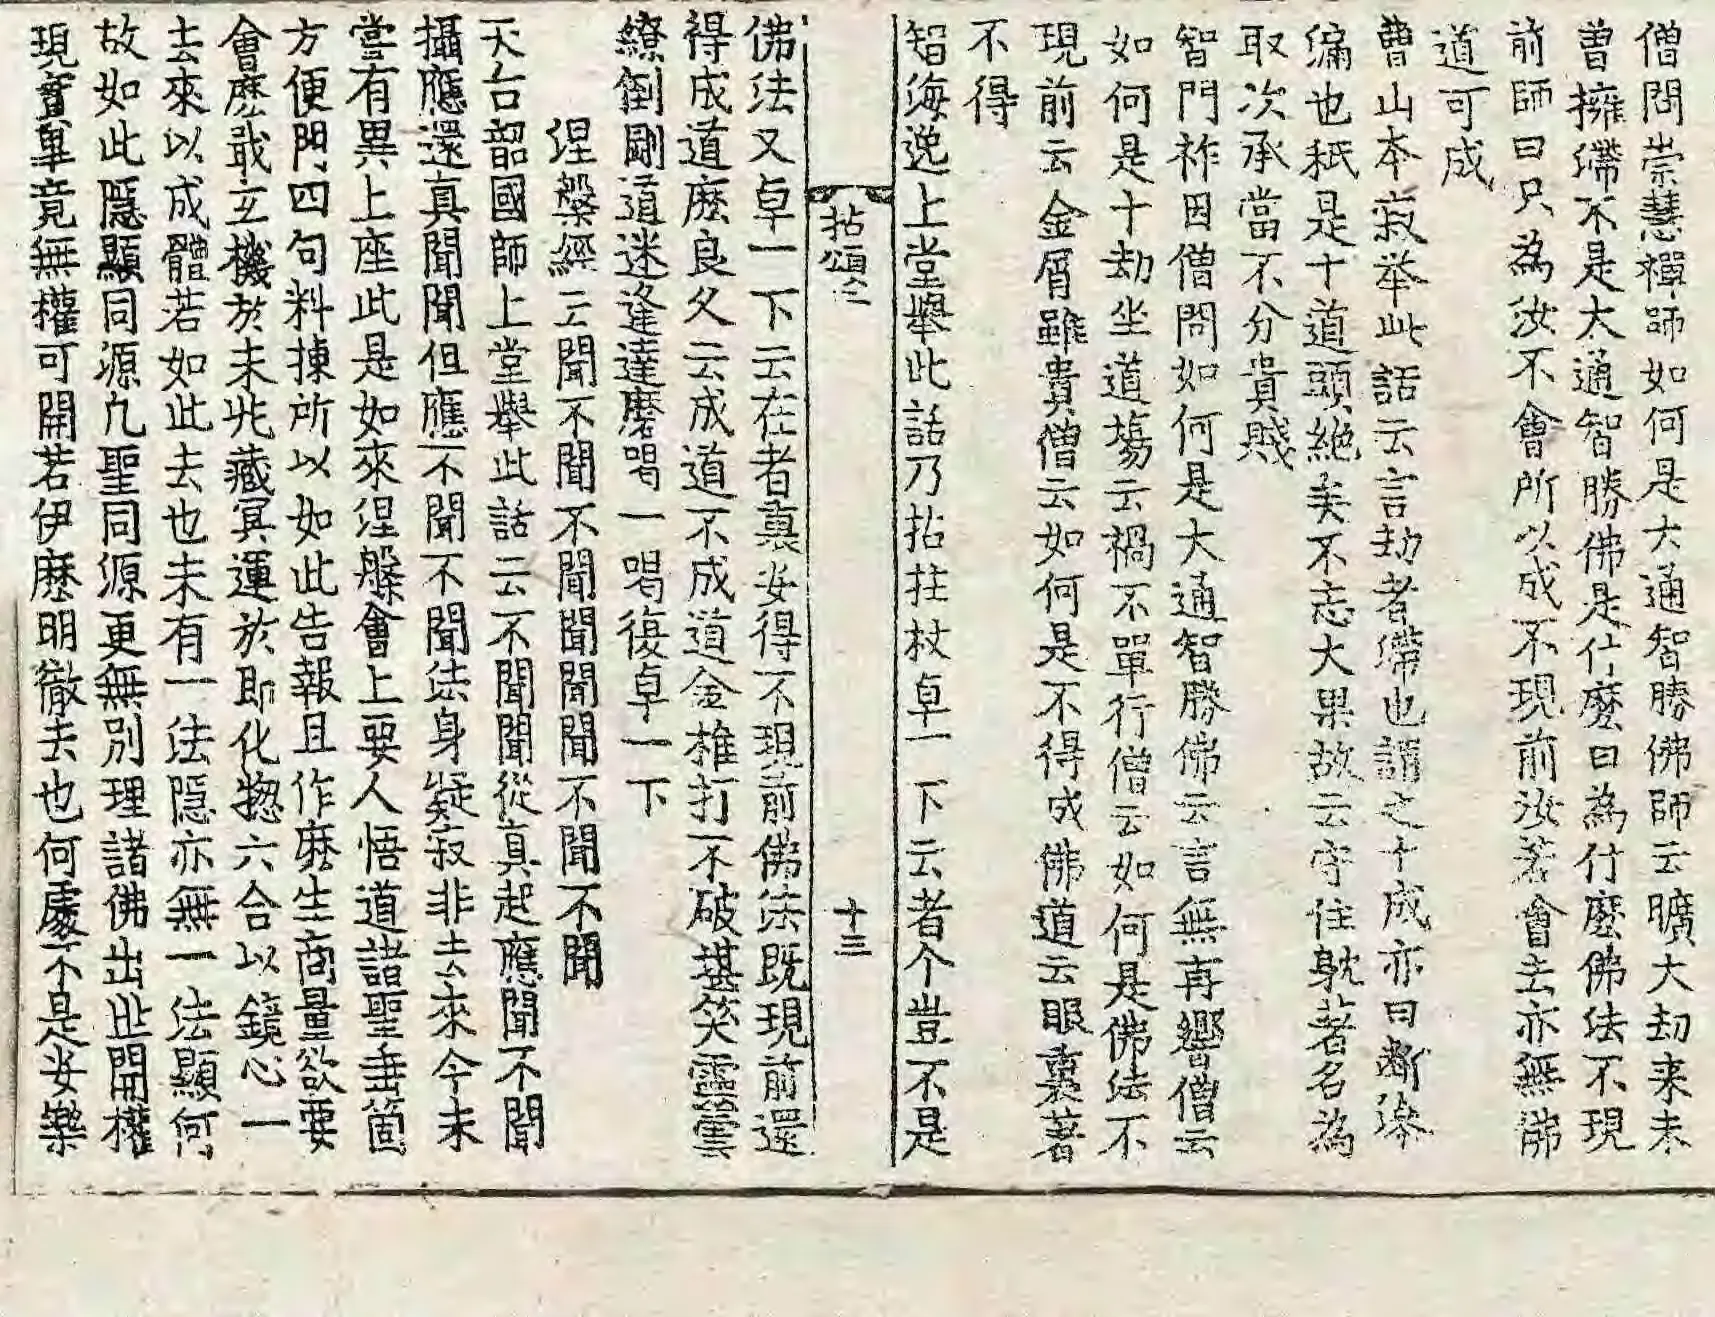 僧問崇慧禪師如何是大通智勝佛師云曠大劫来未
曾擁滯不是大通智勝佛是什麽曰為什麽佛法不現
前師曰只為汝不會所以成不現前汝若會去亦無佛
道可成
曹山本寂举此話云言劫者滯也謂之十成亦曰斷滲
漏也秖是十道頭絶矣不忘大果故云守住躭著名為
取次承當不分貴賤
智門祚因僧問如何是大通智勝佛云言無再響僧云
如何是十劫坐道塲云禍不單行僧云如何是佛法不
現前云金屑雖貴僧云如何是不得成佛道云眼裏著
不得
智海逸上堂舉此話乃拈拄杖卓一下云者个豈不是
拈頌三
十三
佛法又卓一下云在者裏安得不現前佛法既現前還
得成道麽良久云成道不成道金椎打不破堪笑靈蕓
繚倒剛道迷逢達磨喝一喝復卓一下
涅槃經云聞不聞不聞聞聞聞不聞不聞
天台韶國師上堂舉此話云不聞聞從真起應聞不聞
攝應還真聞聞但應不聞不聞法身凝寂非去來今未
嘗有異上座此是如來涅槃會上要人悟道諸聖垂箇
方便門四句料揀所以如此告報且作麽生商量欲要
會麽戢玄機於未兆藏冥運於即化揔六合以鏡心一
去來以成體若如此去也未有一法隱亦無一法顯何
故如此隱顯同源凡聖同源更無別理諸佛出世開權
現實畢竟無權可開若伊麽明徹去也何處不是安樂